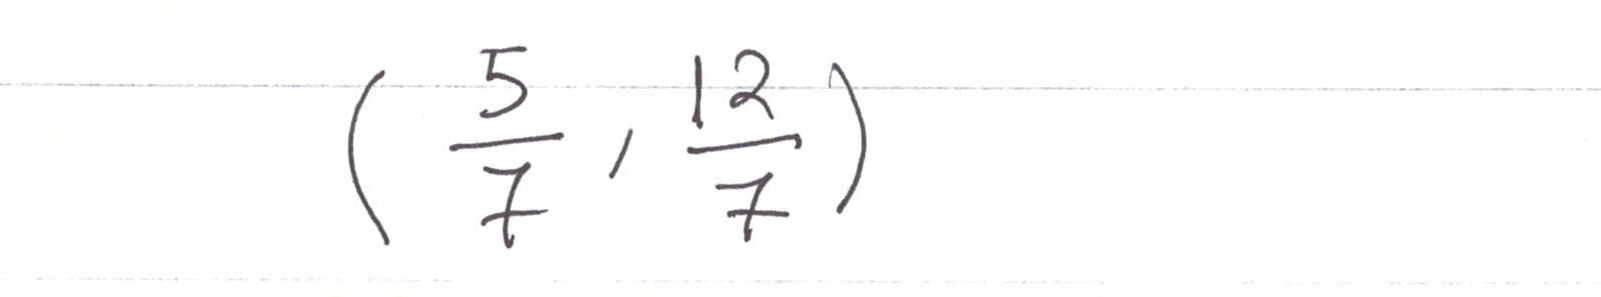 (5/7, 12/7)